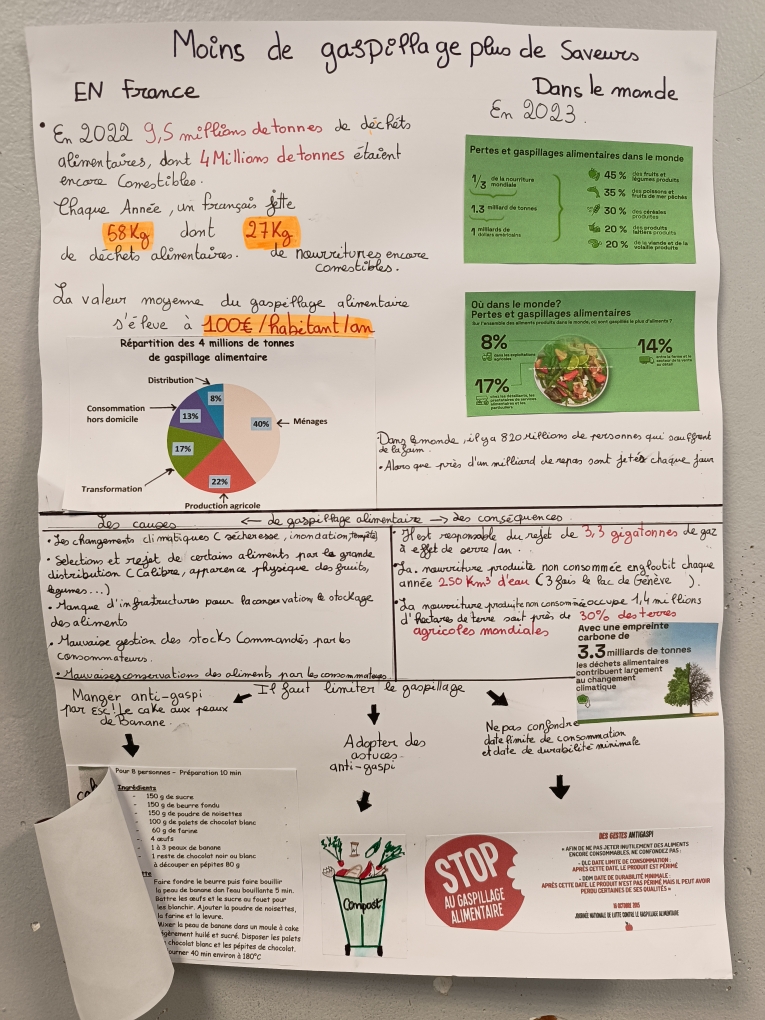 Moins de gaspillage plus de Saveurs
EN France
• En 2022 9,5 millions de tonnes de déchêts
alimentaires, dont 4 Millions de tonnes étaient
encore Comestibles.
Chaque Année, un français jette
58Kg dont 27Kg
de déchêts alimentaires. de nourritures encore
comestibles.
La valeur moyenne du gaspillage alimentaire
s'éleve à 100€/habitant/an
Répartition des 4 millions de tonnes
de gaspillage alimentaire
Distribution
8%
Consommation
hors domicile
13%
40%
Ménages
17%
Transformation
22%
Production agricole
Dans le monde
En 2023.
Pertes et gaspillages alimentaires dans le monde
1/3 de la nourriture
mondiale
1.3 milliard de tonnes
1 milliards de
dollars américains
45 % des fruits et
légumes produits
35 % des poissons et
fruits de mer pêchés
30 % des céréales
produites
20 % des produits
laitiers produits
20 % de la viande et de la
volaille produite
Où dans le monde?
Pertes et gaspillages alimentaires
Sur l'ensemble des aliments produits dans le monde, où sont gaspillés le plus d'aliments ?
8%
dans les exploitations
agricoles
14%
entre la ferme et le
secteur de la vente
au détail
17%
chez les détaillants, les
prestataires de services
alimentaires et les
particuliers
• Dans le monde, il y a 820 Millions de personnes qui souffrent
de la faim.
• Alors que près d'un milliard de repas sont jetés chaque jour
Les causes ← de gaspillage alimentaire → des conséquences
• Les changements climatiques (sécheresse, inondation, tempête)
• Sélections et rejet de certains aliments par la grande
distribution (Calibre, apparence physique des fruits,
légumes...)
• Manque d'infrastructures pour la conservation, le stockage
des aliments
• Mauvaise gestion des stocks Commandés par les
consommateurs.
• Mauvaises conservations des aliments par les consommateurs
• Il est responsable du rejet de 3,3 gigatonnes de gaz
à effet de serre /an.
• La nourriture produite non consommée engloutit chaque
année 250 Km³ d'eau (3 fois le lac de Genève ).
• La nourriture produite non consommée occupe 1,4 millions
d'hectares de terre soit près de 30% des terres
agricoles mondiales
Avec une empreinte
carbone de
3.3 milliards de tonnes
les déchets alimentaires
contribuent largement
au changement
climatique
Il faut limiter le gaspillage
Manger anti-gaspi
par Esc! Le cake aux peaux
de Banane.
Adopter des
astuces
anti-gaspi
Ne pas confondre
date limite de consommation
et date de durabilité minimale
Pour 8 personnes - Préparation 10 min
Ingrédients
- 150 g de sucre
- 150 g de beurre fondu
- 150 g de poudre de noisettes
- 100 g de palets de chocolat blanc
- 60 g de farine
- 4 œufs
- 1 à 3 peaux de banane
- 1 reste de chocolat noir ou blanc
à découper en pépites 80 g
Faire fondre le beurre puis faire bouillir
la peau de banane dan l'eau bouillante 5 min.
Battre les œufs et le sucre au fouet pour
les blanchir. Ajouter la poudre de noisettes,
la farine et la levure.
Mixer la peau de banane dans un moule à cake
légèrement huilé et sucré. Disposer les palets
chocolat blanc et les pépites de chocolat.
40 min environ à 180°C
Compost
STOP
AU GASPILLAGE
ALIMENTAIRE
DES GESTES ANTIGASPI
« AFIN DE NE PAS JETER INUTILEMENT DES ALIMENTS
ENCORE CONSOMMABLES, NE CONFONDEZ PAS :
- DLC DATE LIMITE DE CONSOMMATION :
APRÈS CETTE DATE, LE PRODUIT EST PÉRIMÉ
- DDM DATE DE DURABILITÉ MINIMALE :
APRÈS CETTE DATE, LE PRODUIT N'EST PAS PÉRIMÉ MAIS IL PEUT AVOIR
PERDU CERTAINES DE SES QUALITÉS »
16 OCTOBRE 2015
JOURNÉE NATIONALE DE LUTTE CONTRE LE GASPILLAGE ALIMENTAIRE